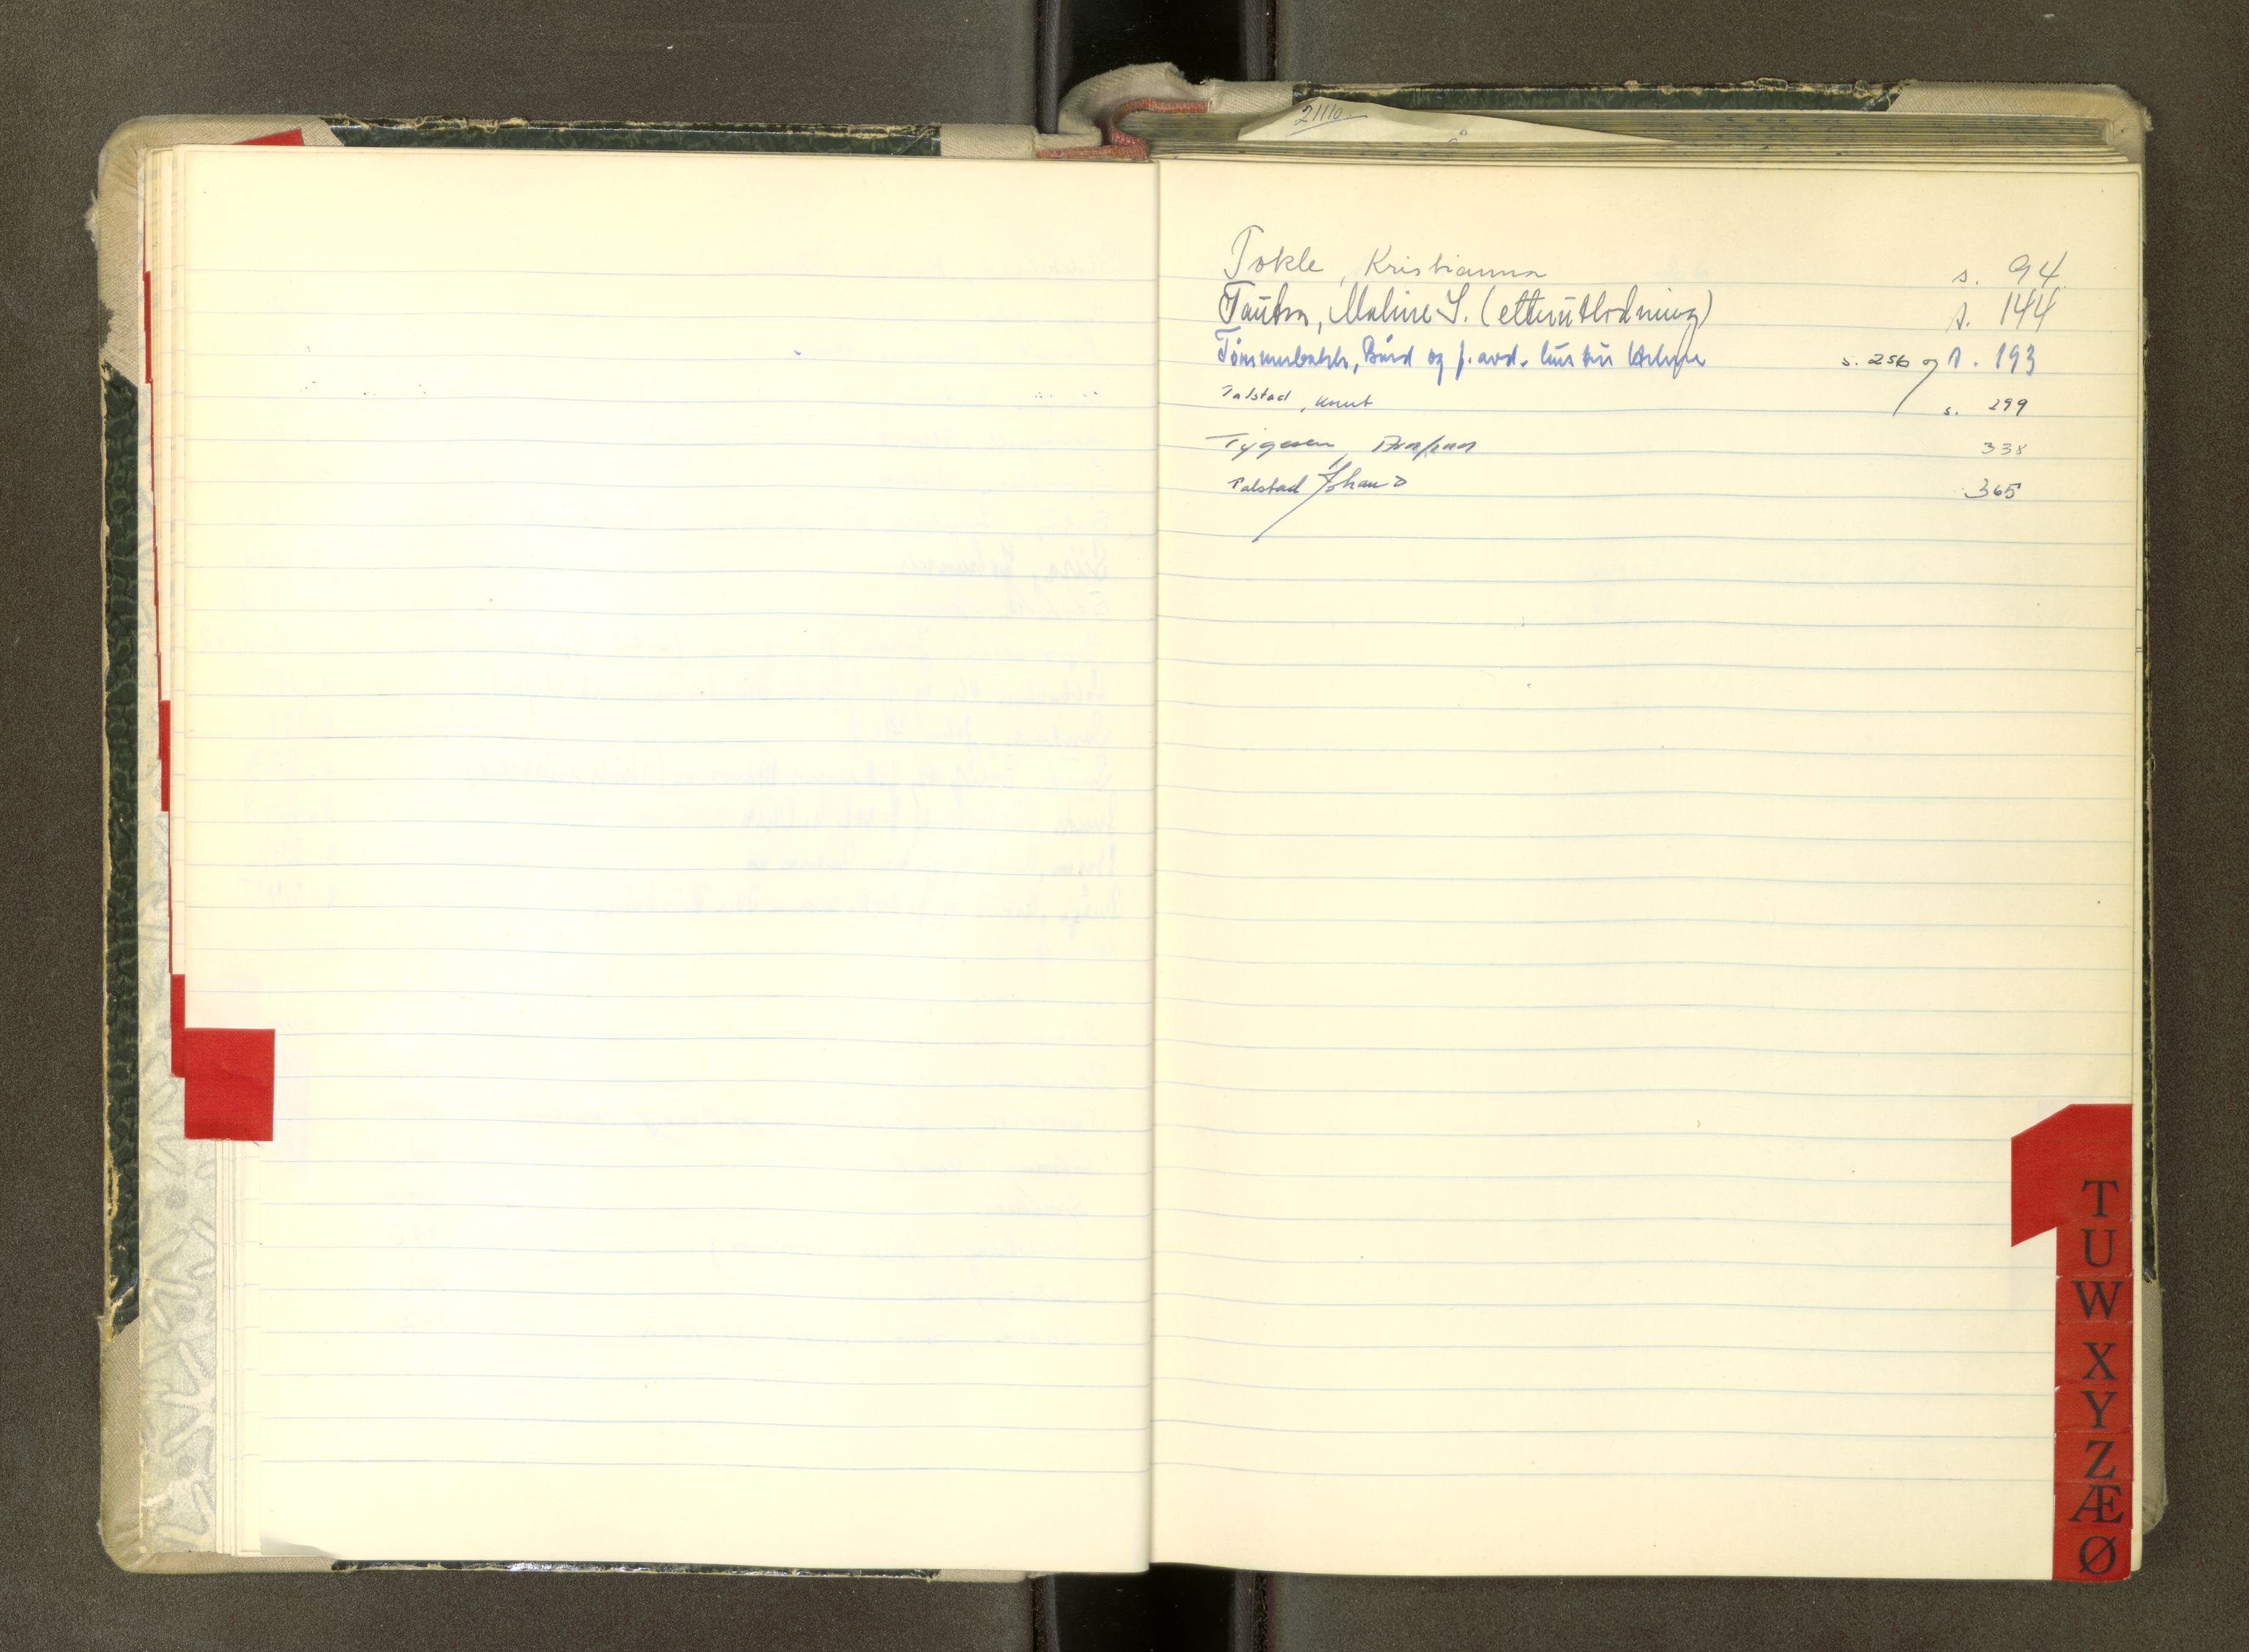 21110
Tokle, Kristianna s. 94
Tautra, Maline S. (etterutlodning) s. 144
Tømmerbakk, Bård og f. avd. hustru s. 256 og s. 193
Talstad, Knut s. 299
Tygesen, 338
Talstad Johan O 365
T
U
W
X
Y
Z
Æ
Ø